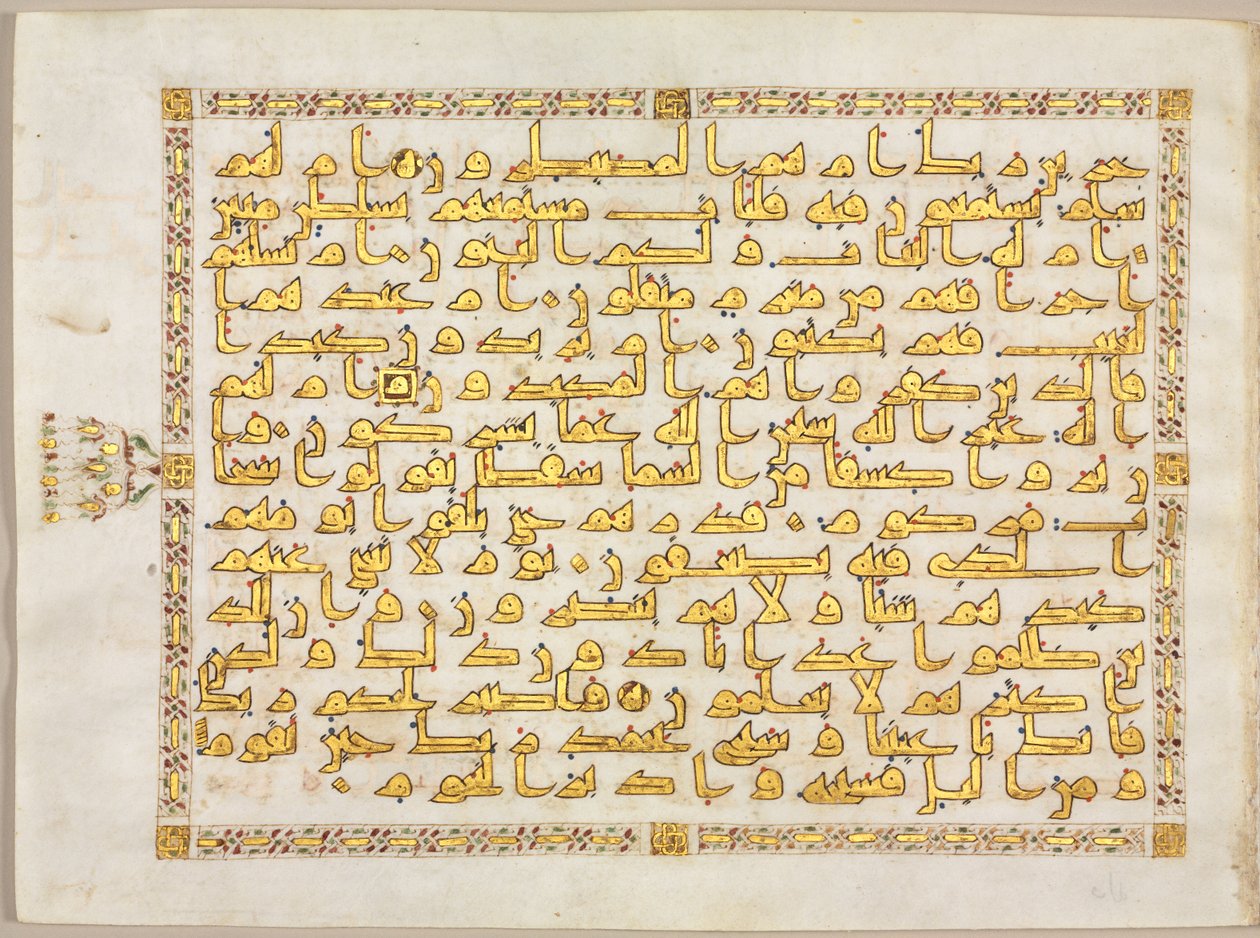 خزين ربك ام هم المصيطرون ام لهم
سلم يستمعون فيه فليات مستمعهم بسلطن مبين
ام له البنات ولكم البنون ام تسلهم
اجرا فهم من مغرم مثقلون ام عندهم ا
لغيب فهم يكتبون ام يريدون كيدا
فالذين كفروا هم المكيدون ام لهم
اله غير الله سبحن الله عما يشركون وا
ن يروا كسفا من السما سقطا يقولوا سحا
ب مركوم فذرهم حتى يلقوا يومهم
الذي فيه يصعقون يوم لا يغني عنهم
كيدهم شيا ولا هم ينصرون وان للذ
ين ظلموا عذابا دون ذلك ولكن
اكثرهم لا يعلمون فاصبر لحكم ربك
فانك باعيننا وسبح بحمد ربك حين تقوم
ومن اليل فسبحه وادبر النجوم